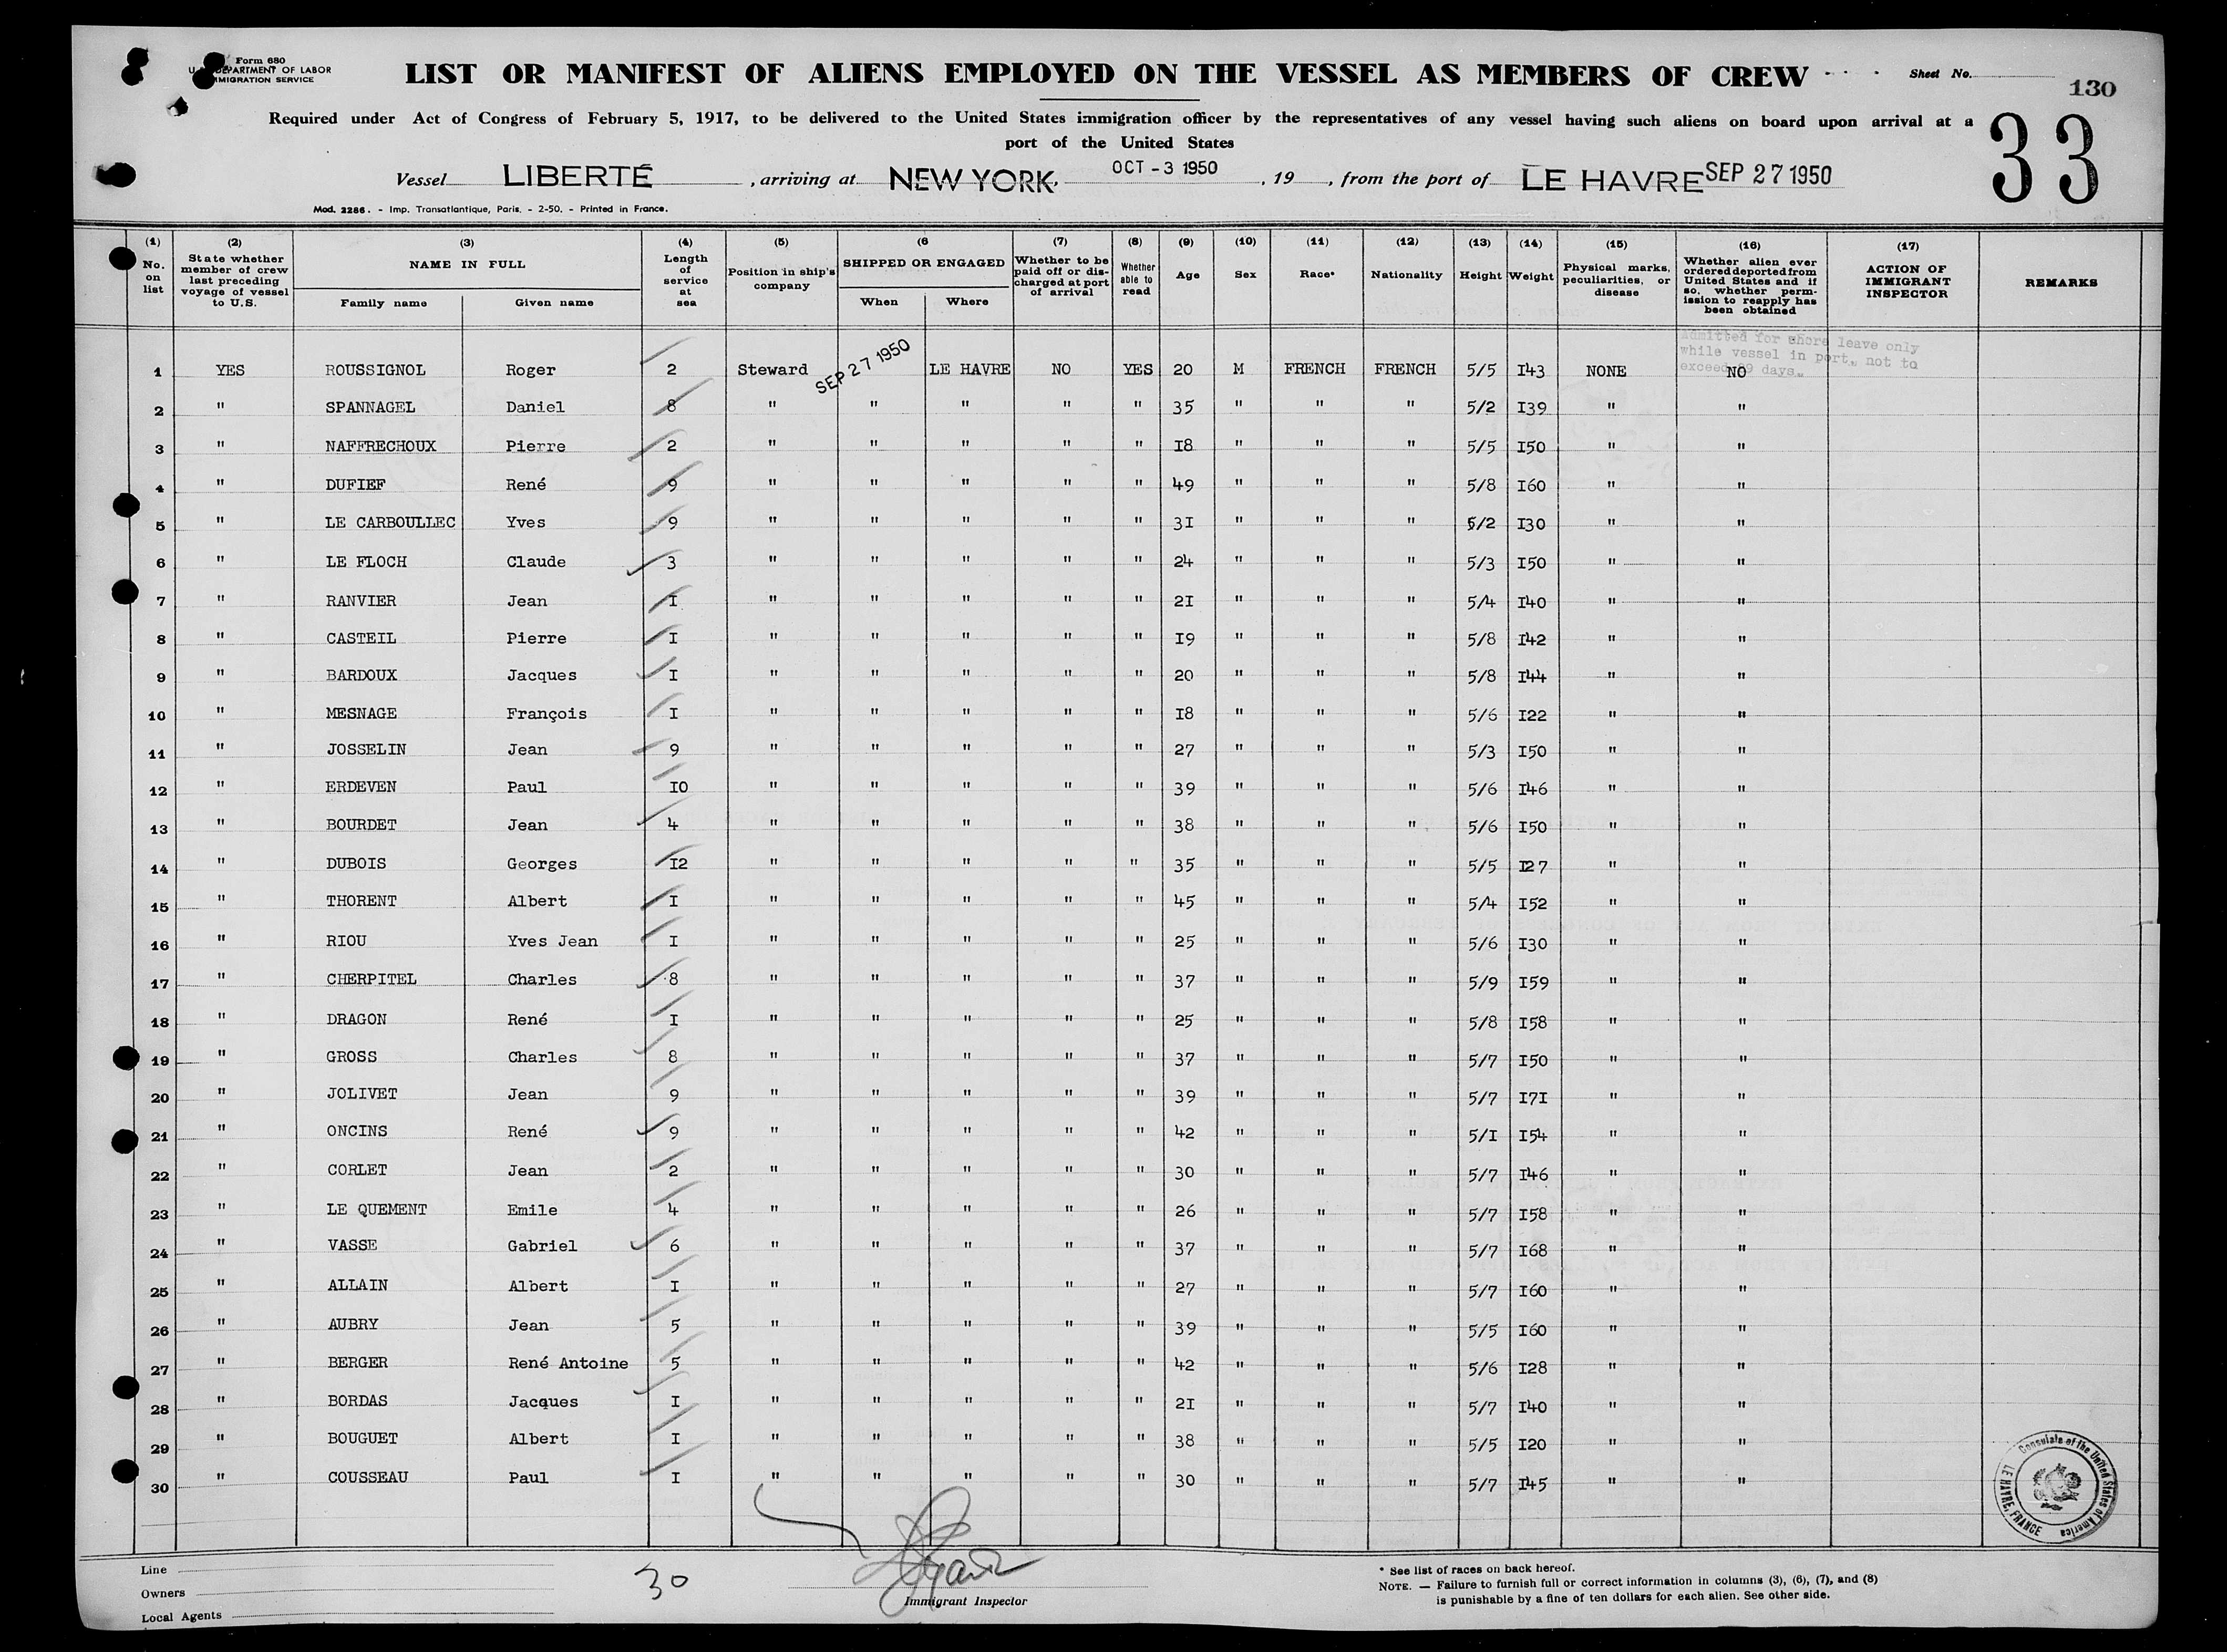 Form 680
U. S. DEPARTMENT OF LABOR
IMMIGRATION SERVICE
LIST OR MANIFEST OF ALIENS EMPLOYED ON THE VESSEL AS MEMBERS OF CREW
Sheet No.
130
33
Required under Act of Congress of February 5, 1917, to be delivered to the United States immigration officer by the representatives of any vessel having such aliens on board upon arrival at a
port of the United States
Vessel LIBERTÉ, arriving at NEW YORK, OCT - 3 1950, 19 , from the port of LE HAVRE SEP 27 1950
Mod. 2286. - Imp. Transatlantique, Paris. - 2-50. - Printed in France.
(1) No. on list
(2) State whether member of crew last preceding voyage of vessel to U.S.
(3) NAME IN FULL Family name Given name
(4) Length of service at sea
(5) Position in ship's company
(6 SHIPPED OR ENGAGED When Where
(7) Whether to be paid off or discharged at port of arrival
(8) Whether able to read
(9) Age
(10) Sex
(11) Race*
(12) Nationality
(13) Height
(14) Weight
(15) Physical marks, peculiarities, or disease
(16) Whether alien ever ordered deported from United States and if so, whether permission to reapply has been obtained
(17) ACTION OF IMMIGRANT INSPECTOR
REMARKS
admitted for shore leave only
while vessel in port, not to
exceed 29 days.
1 YES ROUSSIGNOL Roger 2 Steward SEP 27 1950 LE HAVRE NO YES 20 M FRENCH FRENCH 5/5 I43 NONE NO
2 " SPANNAGEL Daniel 8 " " " " " 35 " " " 5/2 I39 " "
3 " NAFFRECHOUX Pierre 2 " " " " " I8 " " " 5/5 I50 " "
4 " DUFIEF René 9 " " " " " 49 " " " 5/8 I60 " "
5 " LE CARBOULLEC Yves 9 " " " " " 3I " " " 5/2 I30 " "
6 " LE FLOCH Claude 3 " " " " " 24 " " " 5/3 I50 " "
7 " RANVIER Jean I " " " " " 2I " " " 5/4 I40 " "
8 " CASTEIL Pierre I " " " " " I9 " " " 5/8 I42 " "
9 " BARDOUX Jacques I " " " " " 20 " " " 5/8 I44 " "
10 " MESNAGE François I " " " " " I8 " " " 5/6 I22 " "
11 " JOSSELIN Jean 9 " " " " " 27 " " " 5/3 I50 " "
12 " ERDEVEN Paul IO " " " " " 39 " " " 5/6 I46 " "
13 " BOURDET Jean 4 " " " " " 38 " " " 5/6 I50 " "
14 " DUBOIS Georges I2 " " " " " 35 " " " 5/5 I27 " "
15 " THORENT Albert I " " " " " 45 " " " 5/4 I52 " "
16 " RIOU Yves Jean I " " " " " 25 " " " 5/6 I30 " "
17 " CHERPITEL Charles 8 " " " " " 37 " " " 5/9 I59 " "
18 " DRAGON René I " " " " " 25 " " " 5/8 I58 " "
19 " GROSS Charles 8 " " " " " 37 " " " 5/7 I50 " "
20 " JOLIVET Jean 9 " " " " " 39 " " " 5/7 I7I " "
21 " ONCINS René 9 " " " " " 42 " " " 5/I I54 " "
22 " CORLET Jean 2 " " " " " 30 " " " 5/7 I46 " "
23 " LE QUEMENT Emile 4 " " " " " 26 " " " 5/7 I58 " "
24 " VASSE Gabriel 6 " " " " " 37 " " " 5/7 I68 " "
25 " ALLAIN Albert I " " " " " 27 " " " 5/7 I60 " "
26 " AUBRY Jean 5 " " " " " 39 " " " 5/5 I60 " "
27 " BERGER René Antoine 5 " " " " " 42 " " " 5/6 I28 " "
28 " BORDAS Jacques I " " " " " 2I " " " 5/7 I40 " "
29 " BOUGUET Albert I " " " " " 38 " " " 5/5 I20 " "
30 " COUSSEAU Paul I " " " " " 30 " " " 5/7 I45 " "
Consulate of the United States of America
LE HAVRE, FRANCE
Line
Owners
Local Agents
30
Immigrant Inspector
* See list of races on back hereof.
NOTE. — Failure to furnish full or correct information in columns (3), (6), (7), and (8)
is punishable by a fine of ten dollars for each alien. See other side.